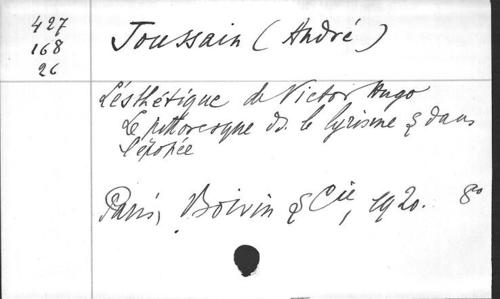 427
168
26
Joussain (André)
L'ésthétique de Victor Hugo
Le pittoresque ds. le lyrisme & dans
l'épopée
Paris, Boivin & Cie, 1920. 8º